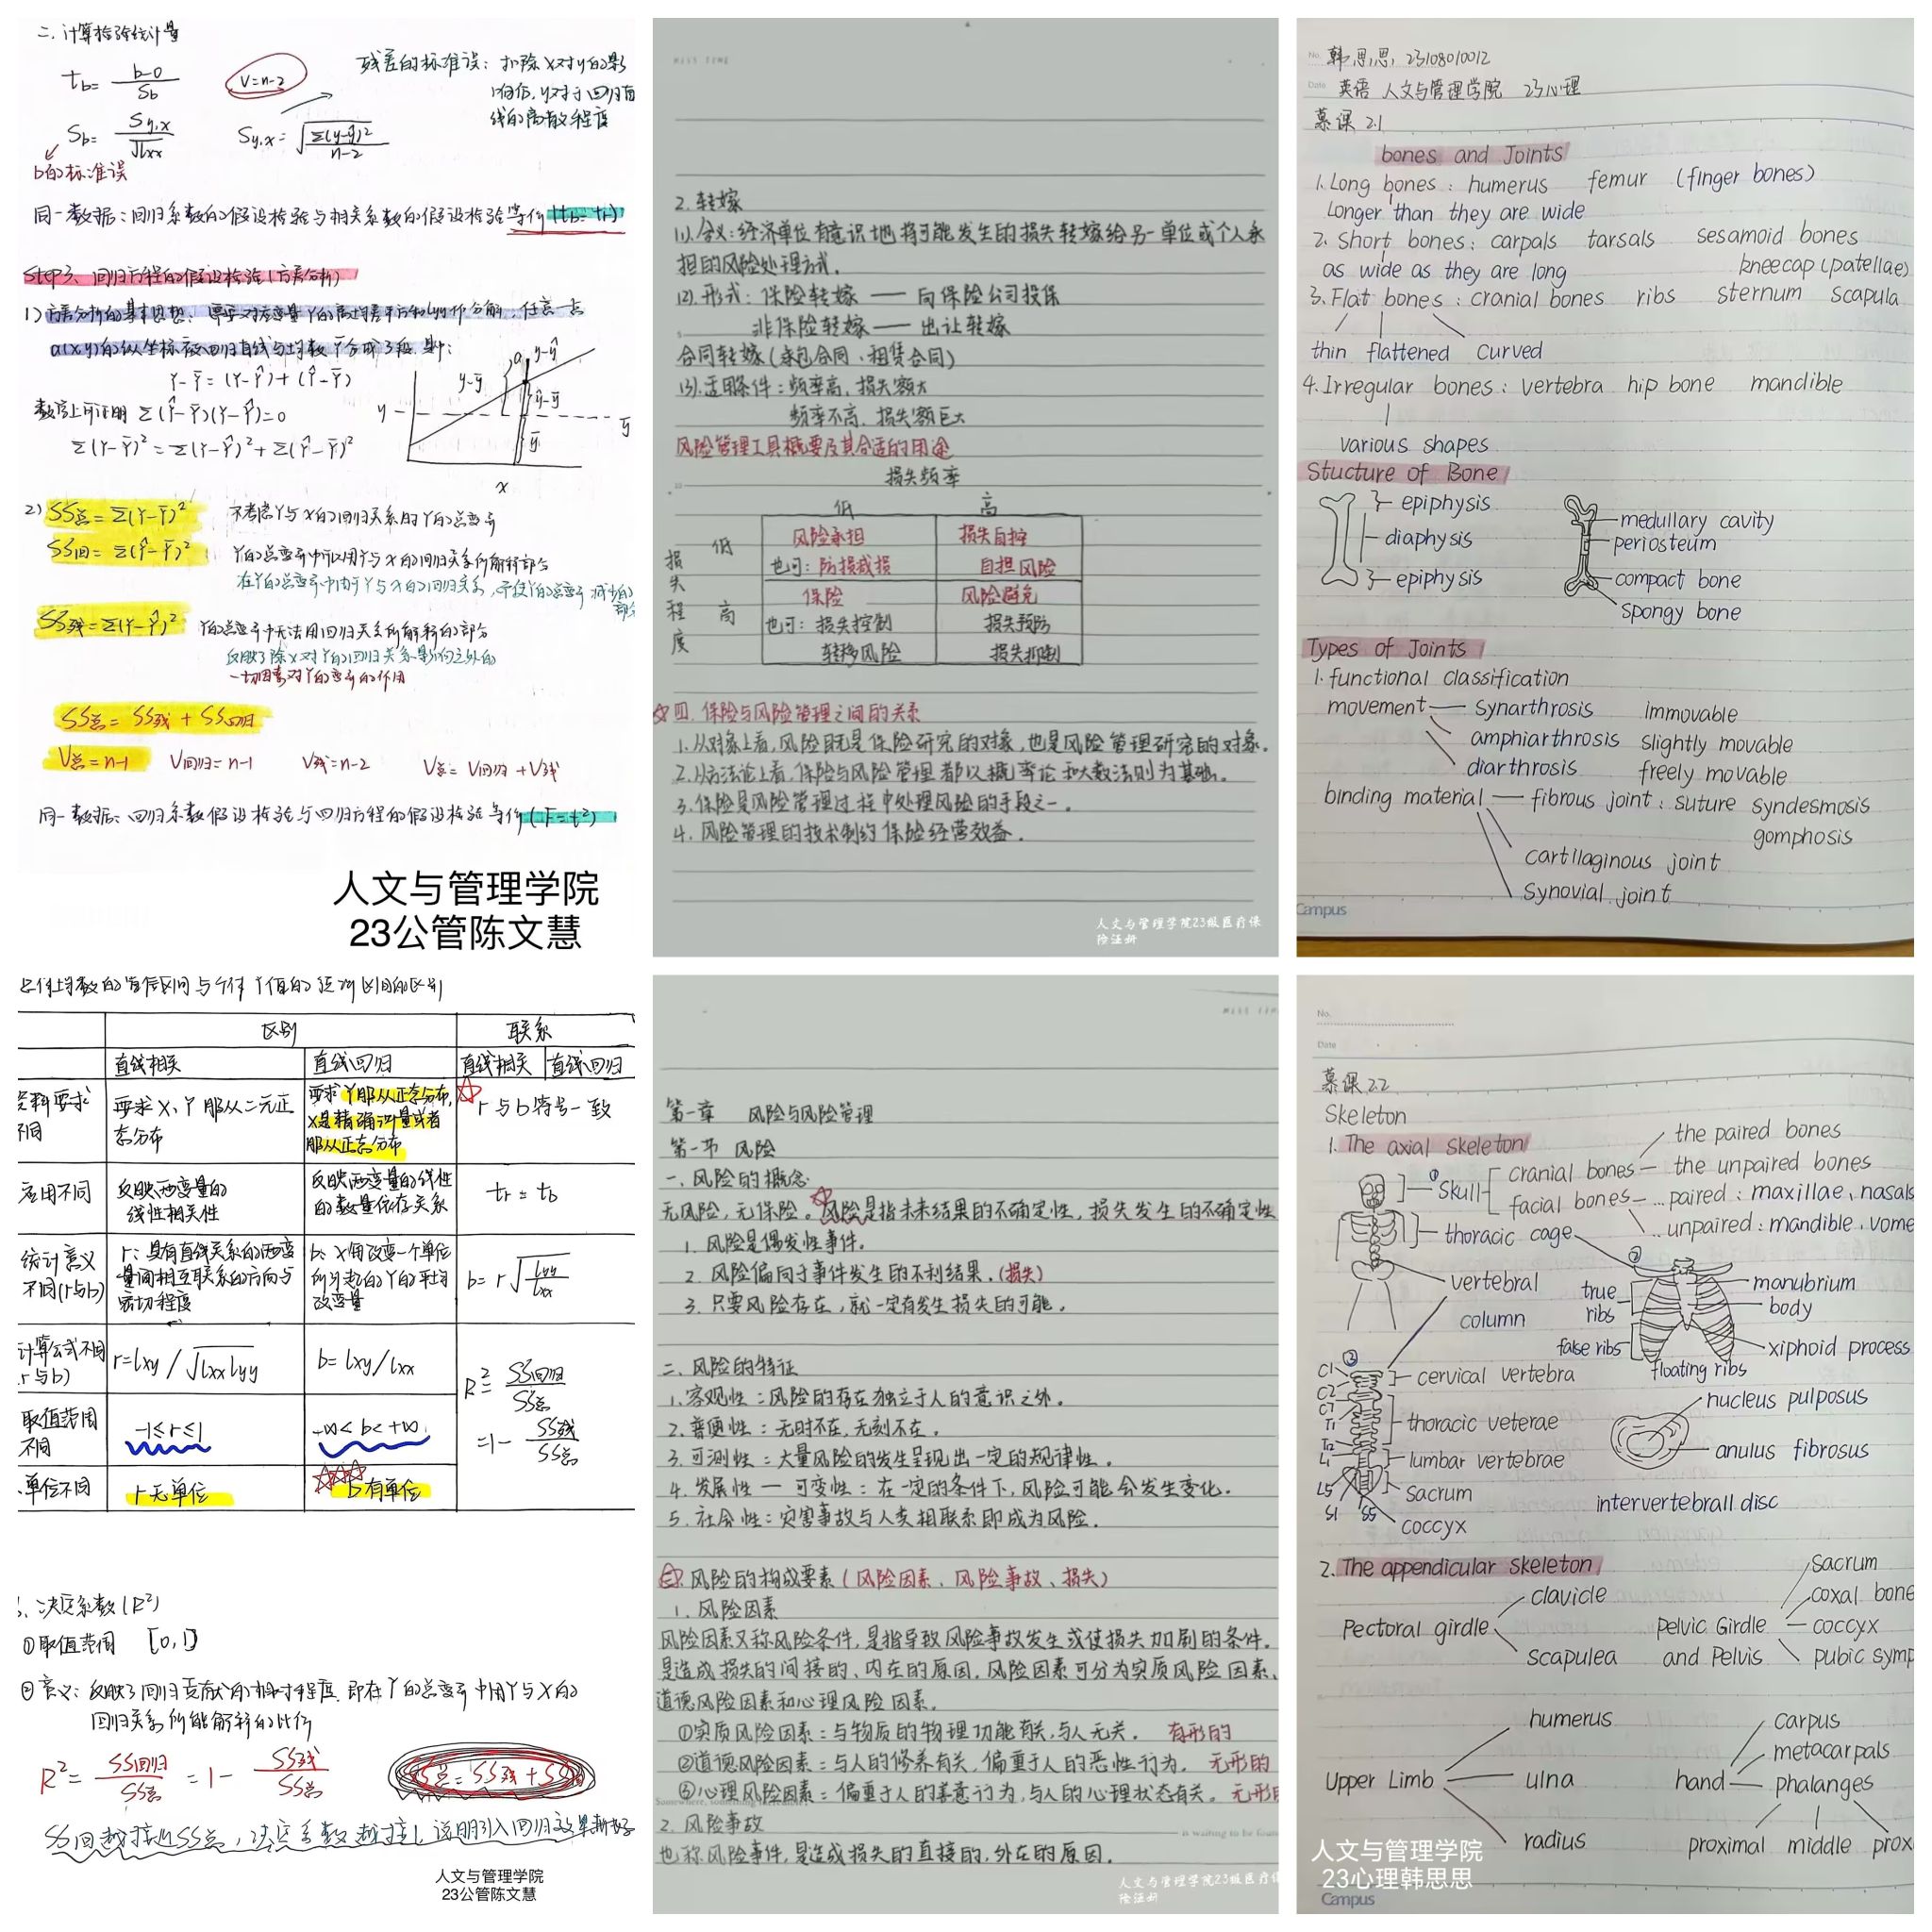 二、计算检验统计量
tb= b-0 / Sb
V=n-2
残差的标准误：扣除X对y的影
响后，y对于回归直
线的离散程度
Sb= Sy.x / √lxx
Sy.x= √Σ(y-ŷ)² / n-2
b的标准误
同一数据：回归系数的假设检验与相关系数的假设检验等价(tb=tr)
Step3、回归方程的假设检验(方差分析)
Y-Ȳ=(Y-Ŷ)+(Ŷ-Ȳ)
数学上可证明 Σ(Ŷ-Ȳ)(Y-Ŷ)=0
Σ(Y-Ȳ)²=Σ(Y-Ŷ)²+Σ(Ŷ-Ȳ)²
2) SS总=Σ(Y-Ȳ)² 不考虑Y与X的回归关系时Y的总变异
SS回=Σ(Ŷ-Ȳ)² Y的总变异中可以用Y与X的回归关系所解释部分
SS残=Σ(Y-Ŷ)² Y的总变异中无法用回归关系所解释的部分
反映了除X对Y的回归关系影响之外的
一切因素对Y的变异的作用
SS总=SS残+SS回归
V总=n-1 V回归=n-1 V残=n-2 V总=V回归+V残
同一数据：回归系数假设检验与回归方程的假设检验等价(F=t²)
人文与管理学院
23公管陈文慧
2. 转嫁
(1).含义：经济单位有意识地将可能发生的损失转嫁给另一单位或个人承
担的风险处理方式.
(2).形式：保险转嫁 —— 向保险公司投保
非保险转嫁 —— 出让转嫁
合同转嫁(承包合同、租赁合同)
(3).适用条件：频率高，损失额大
频率不高，损失额巨大
风险管理工具概要及其合适的用途
损失频率
低 高
损失程度
低 风险承担 损失自担
也可：防损减损 自担风险
高 保险 风险避免
也可：损失控制 损失预防
转移风险 损失抑制
☆四. 保险与风险管理之间的关系
1. 从对象上看，风险既是保险研究的对象，也是风险管理研究的对象.
2. 从方法论上看，保险与风险管理都以概率论和大数法则为基础.
3. 保险是风险管理过程中处理风险的手段之一.
4. 风险管理的技术制约保险经营效益.
人文与管理学院23级医疗保
险汪妍
No. 韩思思, 23108010012
Date 英语 人文与管理学院 23心理
慕课 2.1
bones and Joints
1. Long bones : humerus femur (finger bones)
Longer than they are wide
2. Short bones : carpals tarsals sesamoid bones
as wide as they are long kneecap (patellae)
3. Flat bones : cranial bones ribs sternum scapula
thin flattened curved
4. Irregular bones : vertebra hip bone mandible
various shapes
Stucture of Bone
epiphysis
diaphysis
epiphysis
medullary cavity
periosteum
compact bone
spongy bone
Types of Joints
1. functional classification
movement — synarthrosis immovable
amphiarthrosis slightly movable
diarthrosis freely movable
binding material — fibrous joint : suture syndesmosis
gomphosis
cartilaginous joint
synovial joint
Campus
区别 联系
直线相关 直线回归 直线相关 直线回归
资料要求不同
要求X、Y服从二元正态分布
要求Y服从正态分布，X是精确计量或者服从正态分布
☆ r与b符号一致
应用不同
反映两变量的线性相关性
反映两变量的线性的数量依存关系
tr = tb
统计意义不同(r与b)
r：具有直线关系的两变量间相互联系的方向与密切程度
b：X每改变一个单位所引起的Y的平均改变量
b=r√lyy/lxx
计算公式不同
r与b)
r=lxy/√lxxlyy
b=lxy/lxx
R²= SS回归/SS总
=1- SS残/SS总
取值范围不同
-1≤r≤1
-∞<b<+∞
单位不同
r无单位
b有单位
决定系数(R²)
①取值范围 [0,1]
②意义：反映了回归贡献的相对程度，即在Y的总变异中用Y与X的
回归关系所能解释的比例
R²= SS回归/SS总 =1- SS残/SS总
SS回越接近SS总，决定系数越接近1，说明引入回归效果越好
人文与管理学院
23公管陈文慧
第一章 风险与风险管理
第一节 风险
一、风险的概念
无风险，无保险。风险是指未来结果的不确定性，损失发生的不确定性
1. 风险是偶发性事件.
2. 风险偏向于事件发生的不利结果.(损失)
3. 只要风险存在，就一定有发生损失的可能.
二、风险的特征
1. 客观性：风险的存在独立于人的意识之外.
2. 普遍性：无时不在，无刻不在.
3. 可测性：大量风险的发生呈现出一定的规律性.
4. 发展性 — 可变性：在一定的条件下，风险可能会发生变化.
5. 社会性：灾害事故与人类相联系即成为风险.
三. 风险的构成要素(风险因素、风险事故、损失)
1. 风险因素
风险因素又称风险条件，是指导致风险事故发生或使损失加剧的条件.
是造成损失的间接的、内在的原因，风险因素可分为实质风险因素、
道德风险因素和心理风险因素.
①实质风险因素：与物质的物理功能有关，与人无关. 有形的
②道德风险因素：与人的修养有关，偏重于人的恶性行为. 无形的
③心理风险因素：偏重于人的善意行为，与人的心理状态有关. 无形
2. 风险事故
也称风险事件，是造成损失的直接的，外在的原因.
人文与管理学院23级医疗保
险汪妍
No.
Date
慕课 2.2
Skeleton
1. The axial skeleton
the paired bones
① skull cranial bones — the unpaired bones
facial bones — ... paired : maxillae、nasals
... unpaired : mandible、vome
thoracic cage
vertebral
column
② true ribs
false ribs
floating ribs
manubrium
body
xiphoid process
③ C1 cervical vertebra
C2
C7
T1 thoracic veterae
T12
L1 lumbar vertebrae
L5 sacrum
S1 S5
coccyx
nucleus pulposus
anulus fibrosus
intervertebrall disc
2. The appendicular skeleton
Pectoral girdle
clavicle
scapulea
Pelvic Girdle
and Pelvis
sacrum
coxal bone
coccyx
pubic symp
Upper Limb
humerus
ulna
radius
hand
carpus
metacarpals
phalanges
proximal middle prox
人文与管理学院
23心理韩思思
Campus